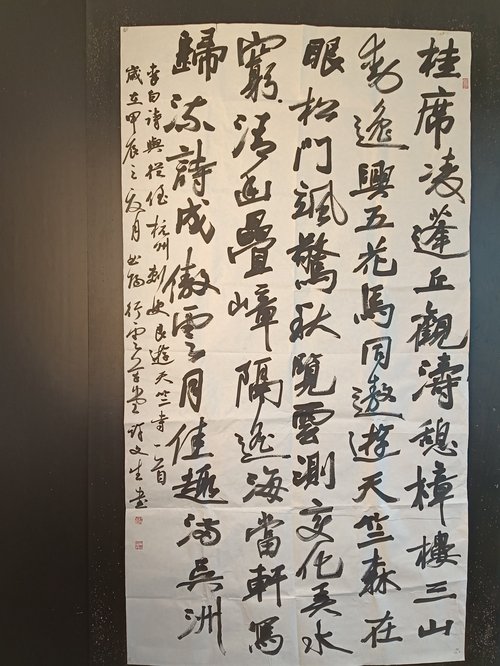 桂席凌蓬丘觀濤憩樟樓三山
動逸興五花馬同遨遊天竺森在
眼松門颯驚秋覽雲測变化弄水
窮清幽疊嶂隔遥海當軒寫
歸流詩成傲雲月佳趣滿吴洲
李白詩與從侄杭州刺史良遊天竺寺一首
歲在甲辰之夏月 行雲草堂 文生書